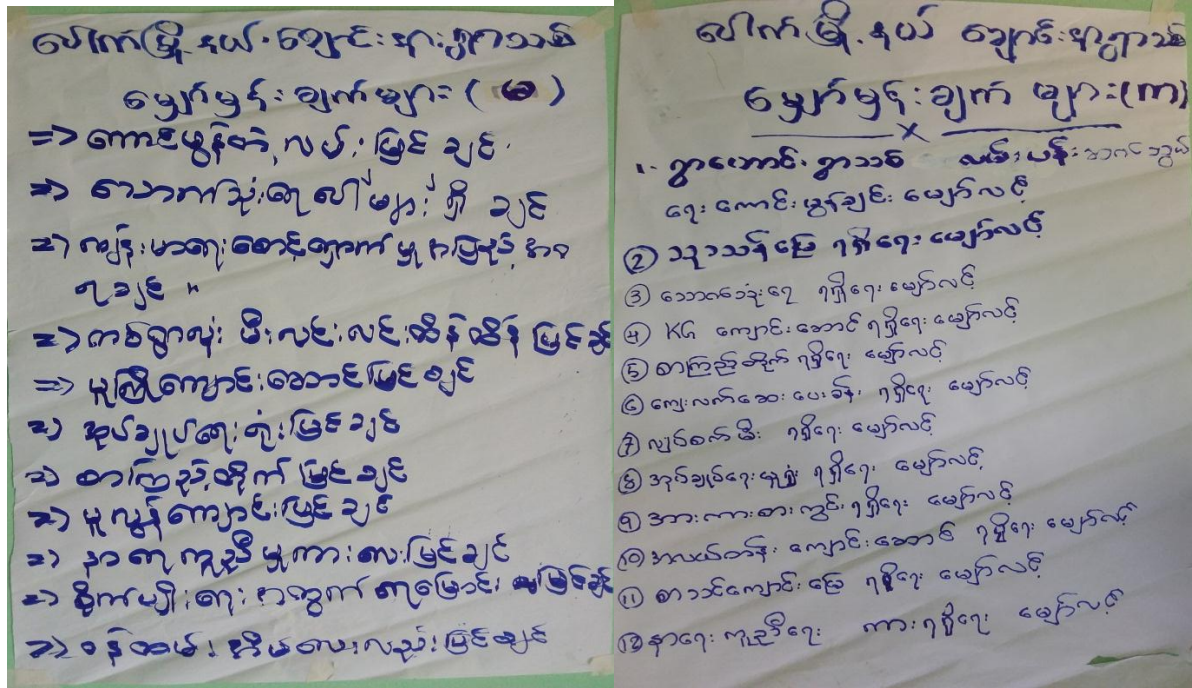 ပေါက်မြို့နယ်၊ ချောင်းနားရွာသစ်
မျှော်မှန်းချက်များ ( မ )
=> ကောင်းမွန်တဲ့ လမ်း မြင်ချင်
=> သောက်သုံးရေ ပေါများ ရှိ ချင်
=> ကျန်းမာရေးစောင့်ရှောက်မှု အပြည့်အဝ
ရချင် ။
=> တစ်ရွာလုံး မီးလင်းလင်းထိန်ထိန် မြင်ချင်
=> မူကြိုကျောင်းဆောင်မြင်ချင်
=> အုပ်ချုပ်ရေးရုံးမြင်ချင်
=> စာကြည့်တိုက် မြင်ချင်
=> မူလွန်ကျောင်းမြင်ချင်
=> နာရေးကူညီမှုကားလေးမြင်ချင်
=> စိုက်ပျိုးရေးအတွက် ရေမြောင်း မြင်ချင်
=> ဝန်ထမ်းအိမ်လေးလည်းမြင်ချင်
ပေါက်မြို့နယ် ချောင်းနားရွာသစ်
မျှော်မှန်းချက် များ(ကာ)
၁. ရွာဟောင်းရွာသစ် လမ်းပန်းဆက်သွယ်
ရေးကောင်းမွန်ချင်း မျှော်လင့်
② သုသာန်မြေ ရရှိရေး မျှော်လင့်
③ သောက်သုံးရေ ရရှိရေး မျှော်လင့်
④ KG ကျောင်းဆောင် ရရှိရေး မျှော်လင့်
⑤ စာကြည့်တိုက် ရရှိရေး မျှော်လင့်
⑥ ကျေးလက်ဆေးပေးခန်း ရရှိရေး မျှော်လင့်
⑦ လျှပ်စစ်မီး ရရှိရေး မျှော်လင့်
⑧ အုပ်ချုပ်ရေးမှူးရုံး ရရှိရေး မျှော်လင့်
⑨ အားကစားကွင်း ရရှိရေး မျှော်လင့်
⑩ အလယ်တန်း ကျောင်းဆောင် ရရှိရေး မျှော်လင့်
⑪ စာသင်ကျောင်းမြေ ရရှိရေး မျှော်လင့်
⑫ နာရေးကူညီရေး ကားရရှိရေး မျှော်လင့်